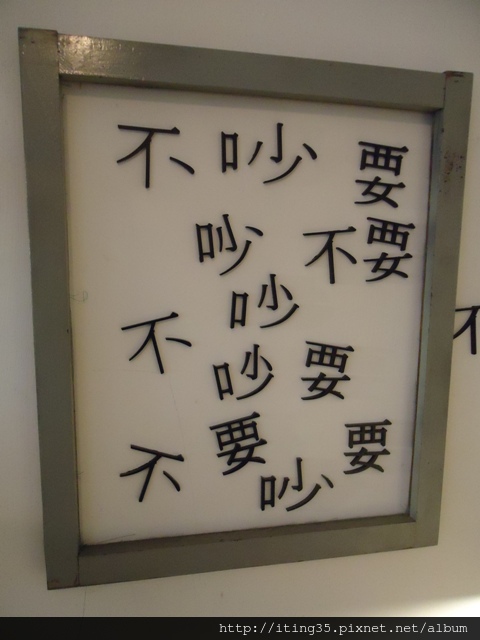 不吵要
吵不要
吵
不
吵要
要要
不吵
http://iting35.pixnet.net/album